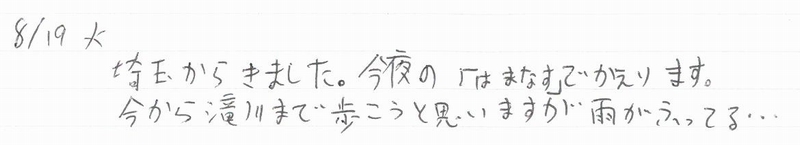 8/19 火
埼玉からきました。今夜の「はまなす」でかえります。
今から滝川まで歩こうと思いますが雨がふってる…